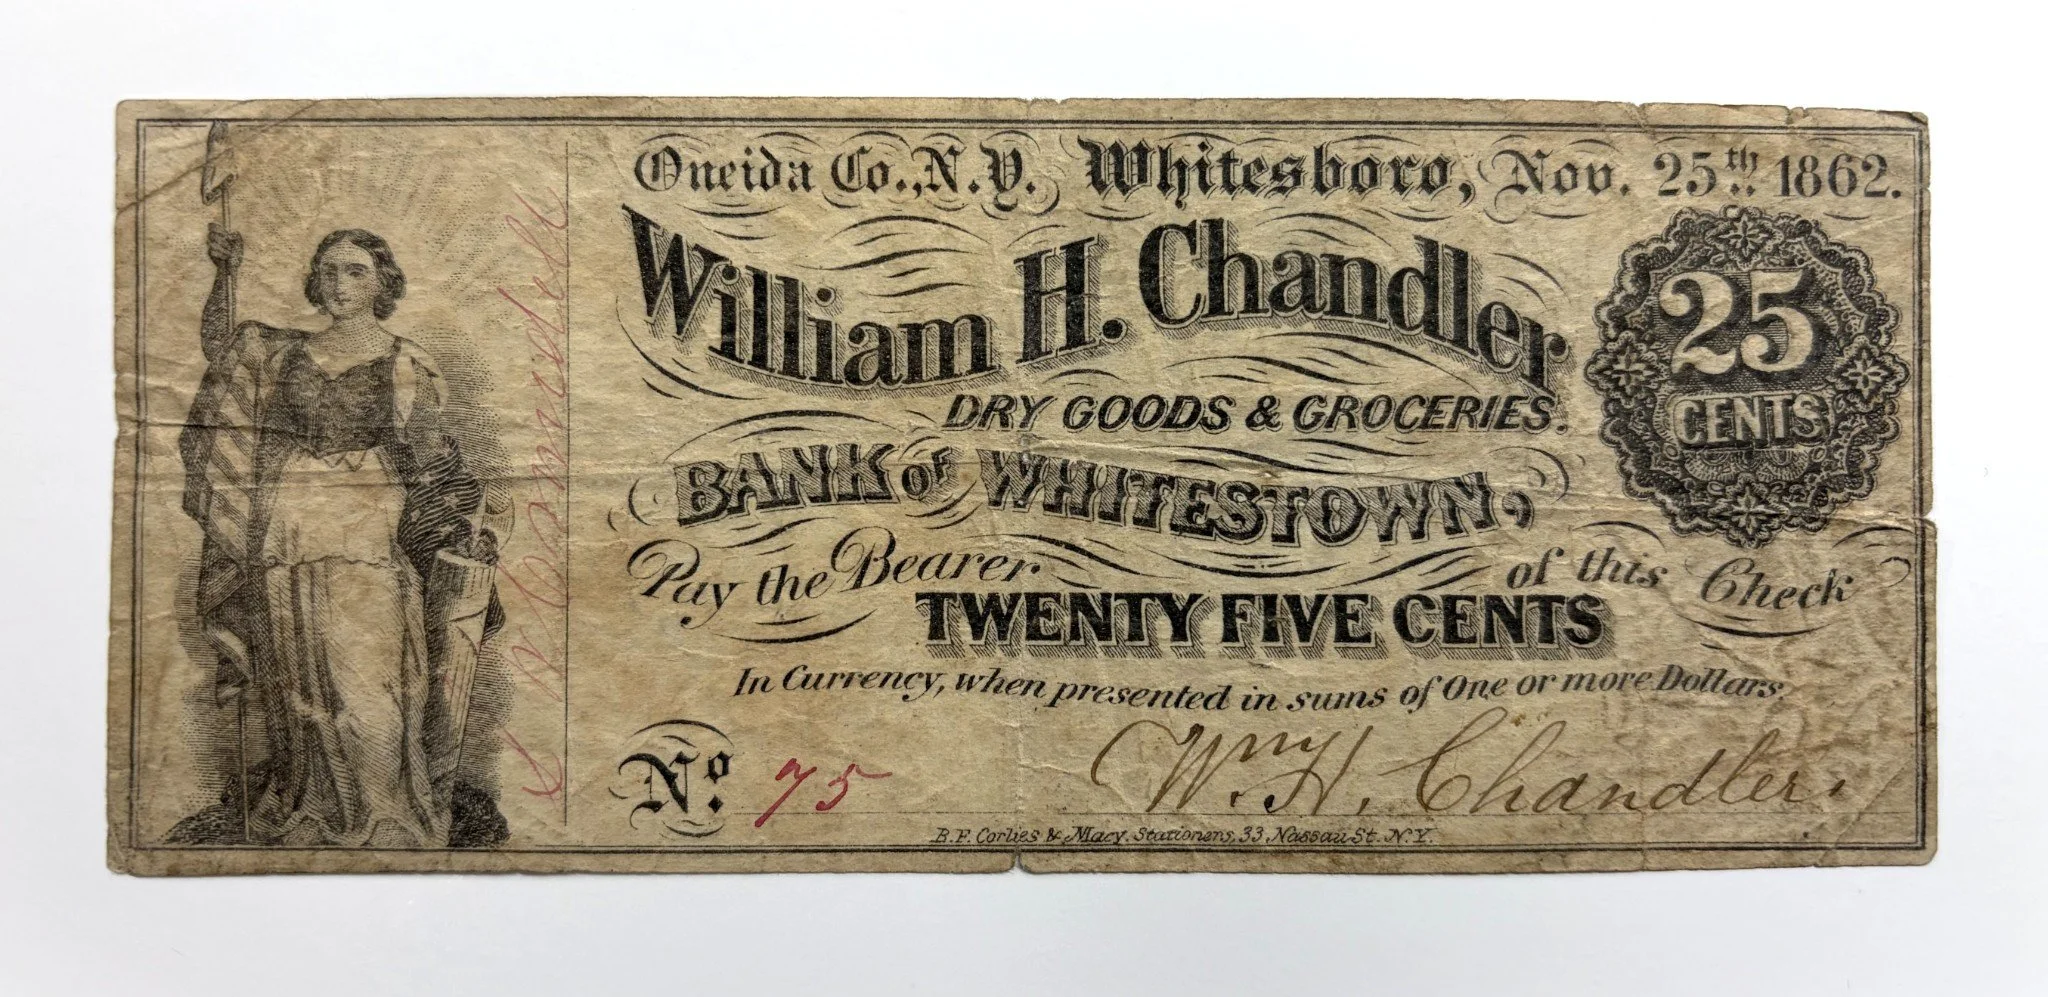 Oneida Co., N.Y. Whitesboro, Nov. 25th 1862.
William H. Chandler
DRY GOODS & GROCERIES.
25
CENTS
BANK OF WHITESTOWN,
Pay the Bearer of this Check
TWENTY FIVE CENTS
In Currency, when presented in sums of One or more Dollars.
No. 75
Wm H. Chandler
B.F. Corlies & Macy, Stationers, 33, Nassau St. N.Y.